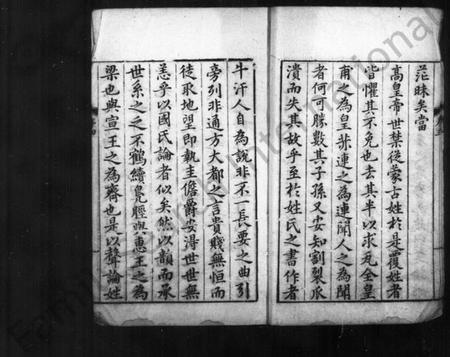 茫昧矣當
高皇帝世禁從蒙古姓於是覆姓者
皆懼其不免也去其半以求瓦全皇
甫之為皇茀連之為連聞人之為聞
者何可勝數其子孫又安知割裂瓜
潰而失其故乎至於姓氏之書作者
牛汗人自為說非不一長要之曲引
旁列非通方大都之言貴賤無恒而
徒取地望即執圭儋爵安得世世無
恙乎以國氏論者似矣然以韻而承
世系之乏不鶴續鳧脛與惠王之為
梁也與宣王之為齊也是以聲論姓